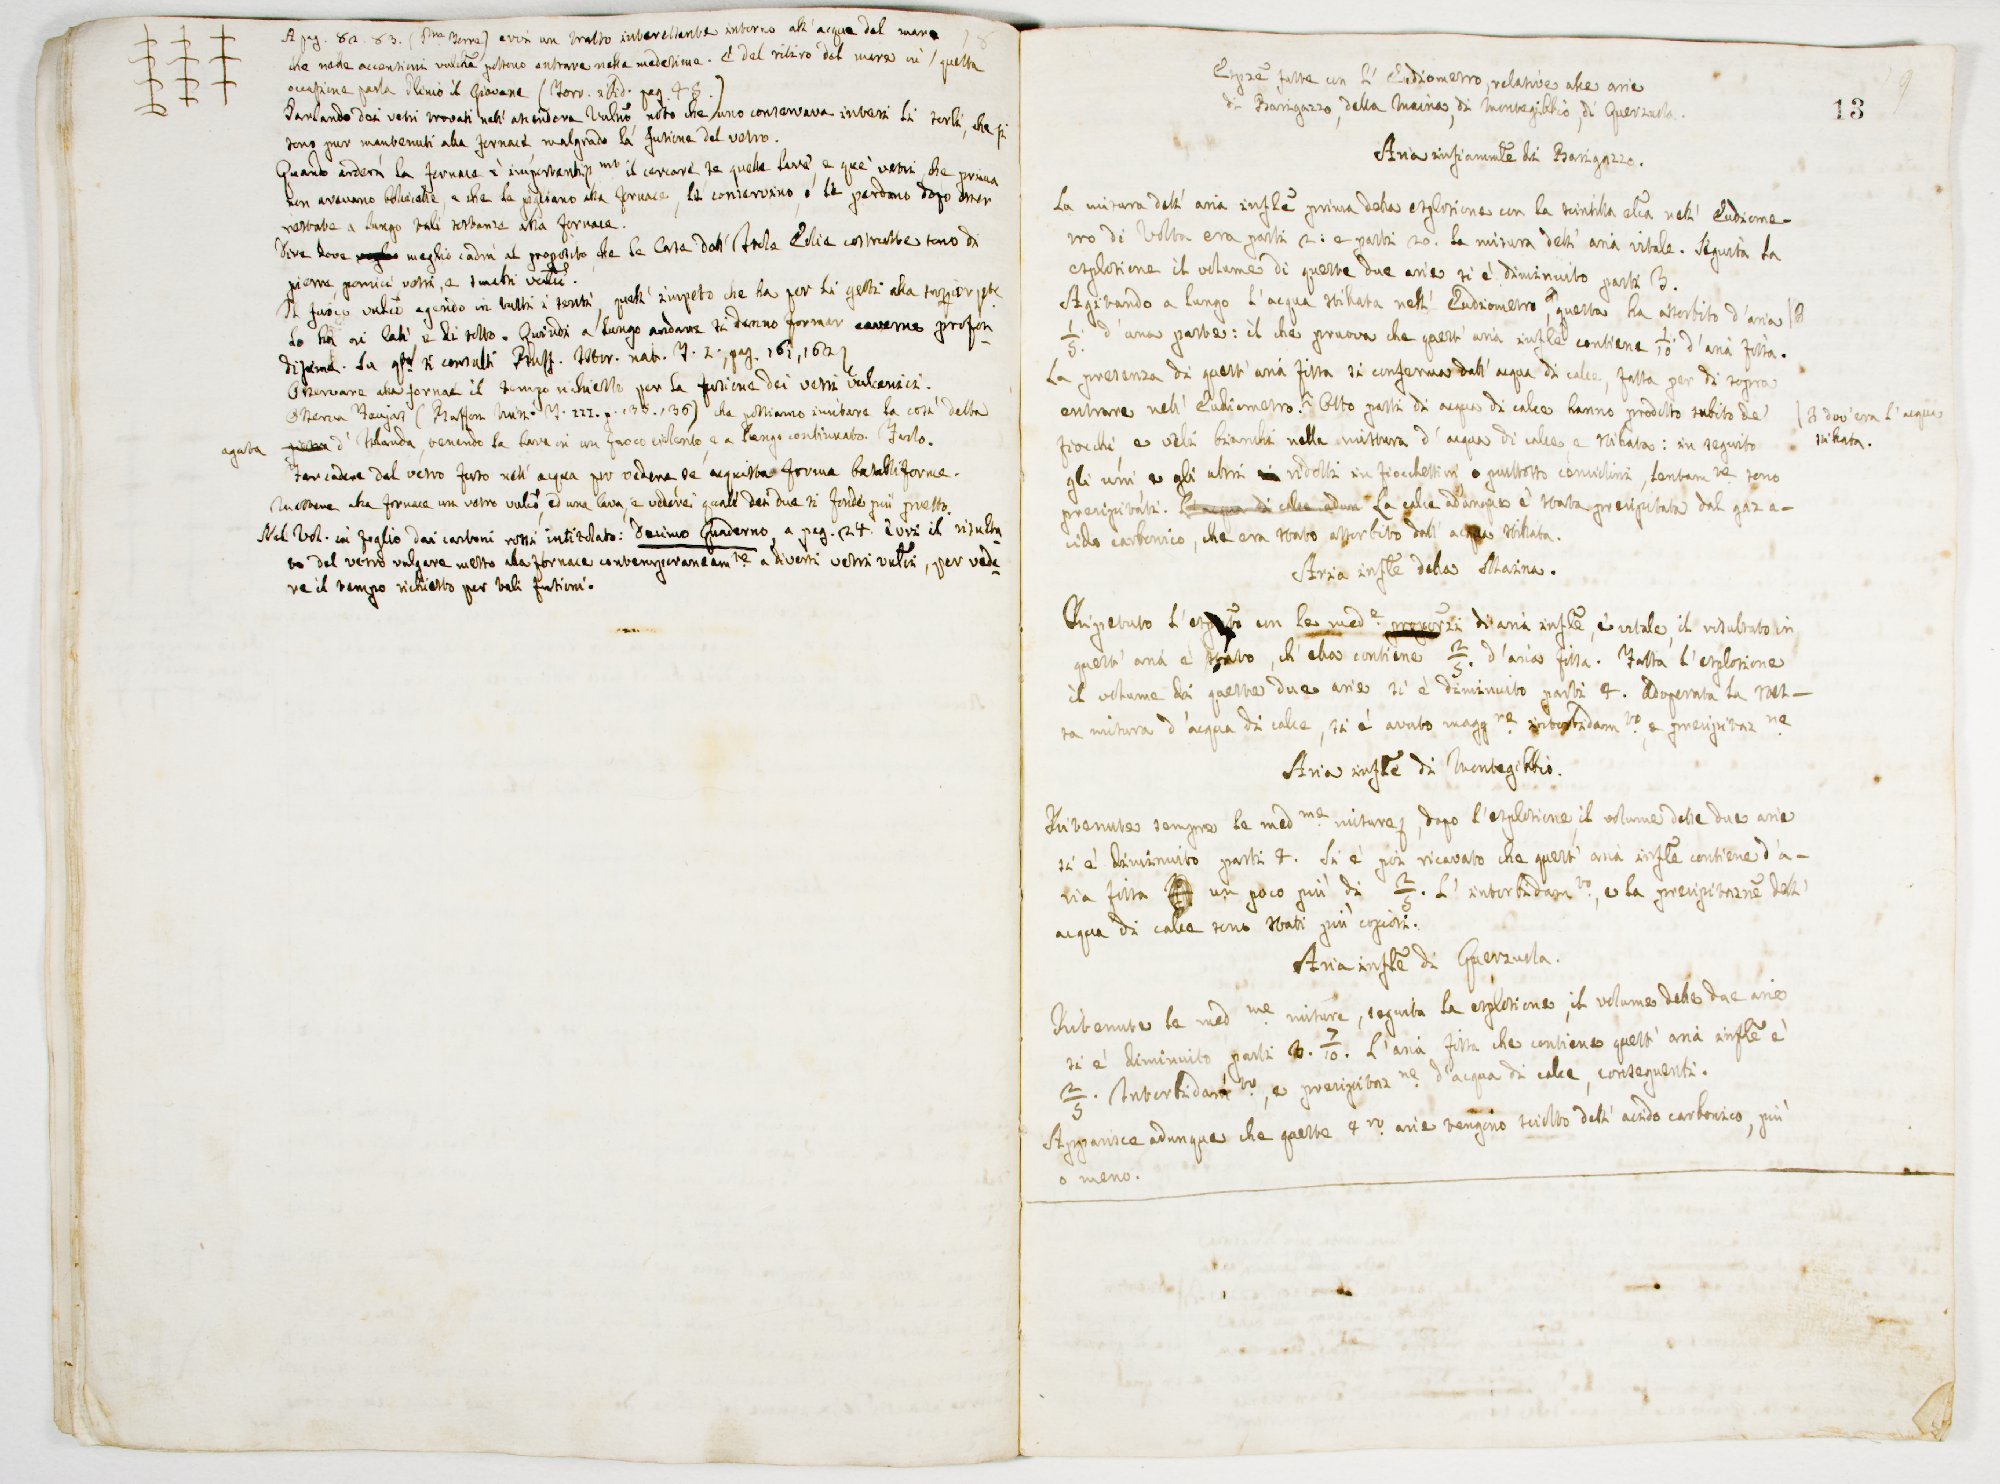 A pag. 82. 83. (Pma Torre) evvi un tratto interessante intorno all' acqua del mare
che nelle accensioni vulche possono entrare nella medesime. E del ritiro dal mare in / questa
occasione parla Plinio il Giovane (Torr. ibid. pag. 48.)
Parlando dei vetri trovati nell' ascendere Vulno, noto che uno conservava interi li scorli, che si
sono pur mantenuti alla fornace malgrado la fusione del vetro.
Quando arderà la fornace è importantissmo il cercare se quelle lave, e que' vetri, che prima
non avevano bollicelle, e che le pigliano alla fornace, le conservino, o le perdano dopo esser
restate a lungo tali sostanze alla fornace.
Dire dove meglio cadrà al proposito che le Case dell' Isole Eolie costrutte sono di
pietre pomici vetri, e smalti vulci.
Il fuoco vulco agendo in tutti i sensi, quell' impeto che ha per li getti alla
lo ha ai lati, e di sotto. Quindi a lungo andare si denno formar caverne profon-
dissime. Su qsto si consulti Buff. Stor. nat. T. 2., pag. 161, 162
Osservare alla fornace il tempo richiesto per la fusione dei vetri vulcanici.
Osserva Faujas (Buffon Min. T. III. p. 135. 136) che possiamo imitare la così detta
agata
pietra d' Islanda, tenendo la lava in un fuoco violento, e a lungo continuato. Farlo.
Far cadere del vetro fuso nell' acqua per vedere se acquista forma basaltiforme.
Mettere alla fornace un vetro vulco, ed una lava, e vedere quale dei due si fonde più presto.
Nel Vol. in foglio dai cartoni rossi intitolato: Decimo Quaderno, a pag. 24. Evvi il risulta-
to del vetro volgare messo alla fornace contemporaneamte a diversi vetri vulci, per vede-
re il tempo richiesto per tali fusioni.
9
13
Espze fatte con l' Eudiometro, relative alle arie
di Barigazzo, della Maina, di Montegibbio, di Querzuola.
Aria infiammle di Barigazzo.
La misura dell' aria infle prima della esplosione con la scintilla elca nell' Eudiome-
tro di Volta era parti 2: e parti 20. la misura dell' aria vitale. Seguita la
esplosione il volume di queste due arie si è diminuito parti 3.
Agitando a lungo l' acqua stillata nell' Eudiometro, questa ha assorbito d' aria
1/5. d' una parte: il che pruova che quest' aria infle contiene 1/10. d' aria fissa.
La presenza di quest' aria fissa si conferma dall' acqua di calce, fatta per di sopra
entrare nell' Eudiometro. Otto parti di acqua di calce hanno prodotto subito de'
/ B dov' era l' acqua
stillata.
fiocchi, e veli bianchi nella mistura d' acqua di calce e stillata: in seguito
gli uni e gli altri ridotti in fiocchettini, o piuttosto conidini, lentamte sono
precipitati. L' acqua di calce adun La calce adunque è stata precipitata dal gaz a-
cido carbonico, che era stato assorbito dall' acqua stillata.
Aria infle della Maina.
Ripetuto l' esptto con le mede proporzi di aria infle, e vitale, il risultato in
quest' aria è stato, ch' ella contiene 2/5. d' aria fissa. Fatta l' esplosione
il volume di queste due arie si è diminuito parti 4. Adoperata la stes-
sa misura d' acqua di calce, si è avuto maggre intorbidamto, e precipitazne
Aria infle di Montegibbio.
Ritenute sempre le medme misure, dopo l' esplosione, il volume delle due arie
si è diminuito parti 4. Si è poi ricavato che quest' aria infle contiene d' a-
ria fissa un poco più di 2/5. L' intorbidamto, e la precipitazne dell'
acqua di calce sono stati più copiosi.
Aria infle di Querzuola.
Ritenute le medme misure, seguita la esplosione, il volume delle due arie
si è diminuito, parti 3. 7/10. L' aria fissa che contiene quest' aria infle è
2/5. Intorbidamto, e precipitazne d' acqua di calce, conseguenti.
Apparisce adunque che queste 4ro arie tengono sciolto dell' acido carbonico, più
o meno.